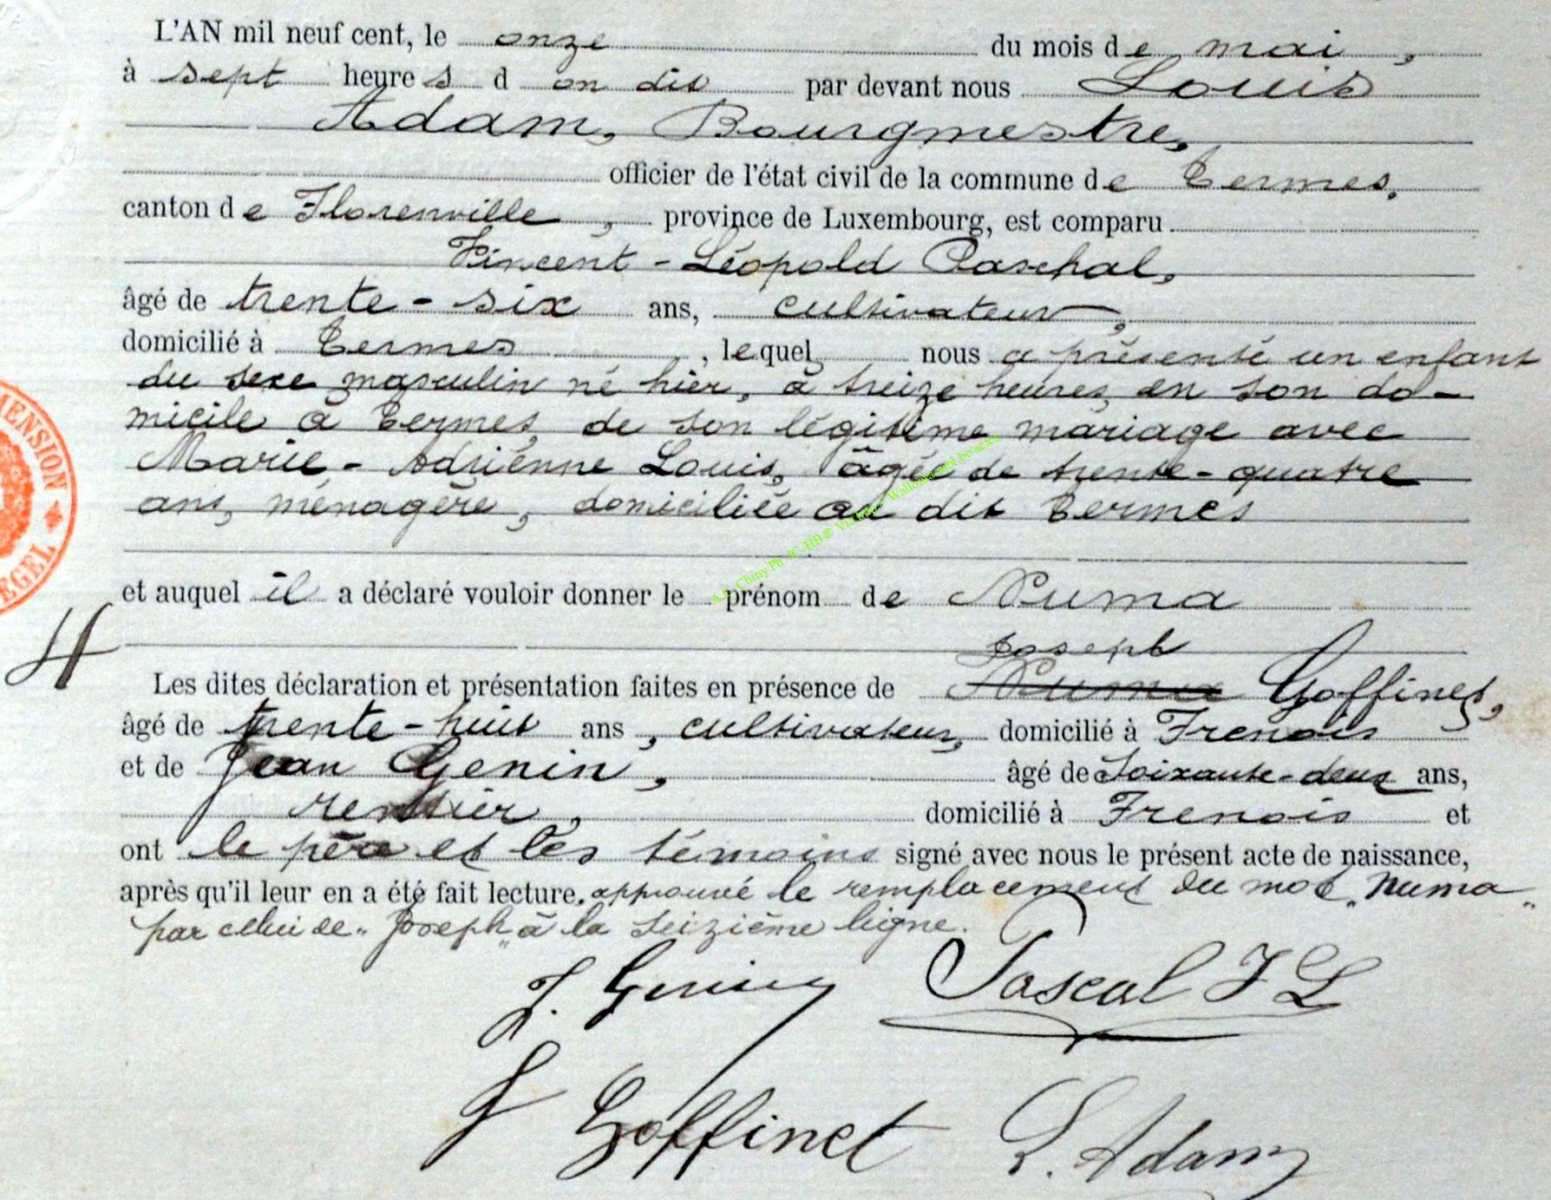 L'AN mil neuf cent, le onze du mois de mai,
à sept heures d on dit par devant nous Louis
Adam, Bourgmestre,
officier de l'état civil de la commune de Termes,
canton de Florenville, province de Luxembourg, est comparu
Vincent-Léopold Paschal,
âgé de trente-six ans, cultivateur,
domicilié à Termes, lequel nous a présenté un enfant
du sexe masculin né hier, à treize heures, en son do-
micile à Termes, de son légitime mariage avec
Marie-Adrienne Louis, âgée de trente-quatre
ans, ménagère, domiciliée au dit Termes
et auquel il a déclaré vouloir donner le prénom de Numa
Joseph
Les dites déclaration et présentation faites en présence de Numa Goffinet,
âgé de trente-huit ans, cultivateur, domicilié à Frenois
et de Jean Genin, âgé de soixante-deux ans,
rentier, domicilié à Frenois et
ont le père et les témoins signé avec nous le présent acte de naissance,
après qu'il leur en a été fait lecture. approuvé le remplacement du mot "Numa"
par celui de "Joseph" à la seizième ligne.
J. Genin Pascal V L
J Goffinet L. Adam
MENSION
EGEL